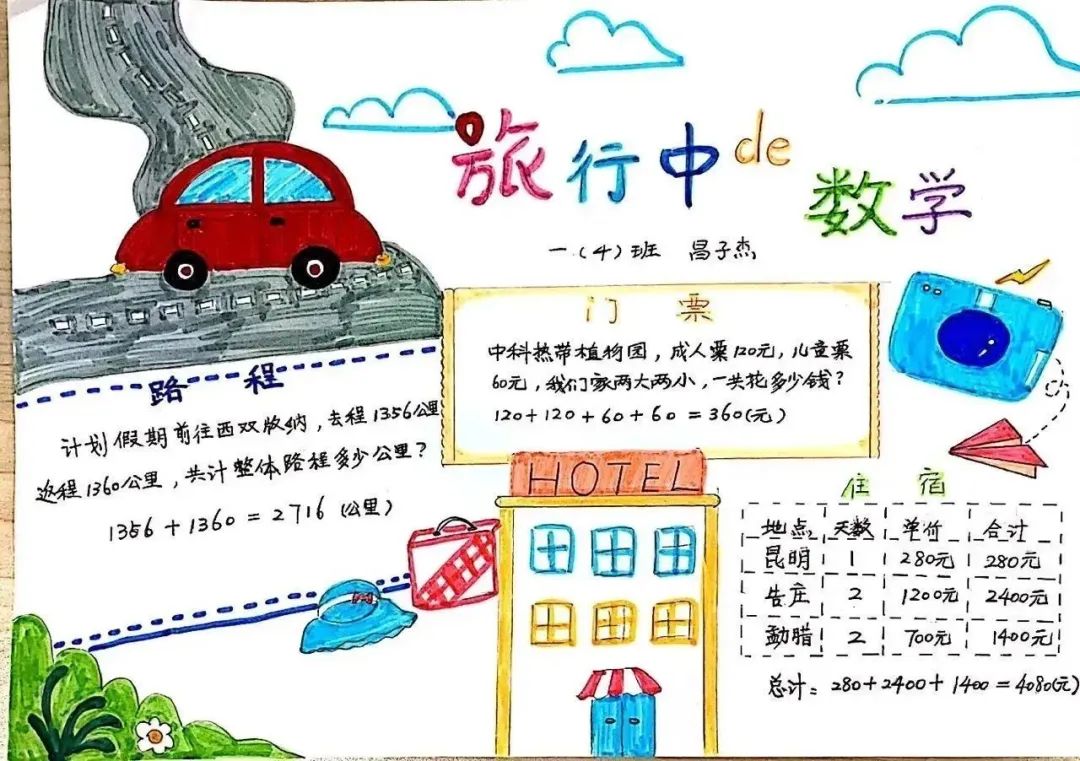 旅行中de
数学
一(4)班 昌子杰
路程
计划假期前往西双版纳,去程1356公里
返程1360公里,共计整体路程多少公里?
1356+1360=2716(公里)
门票
中科热带植物园,成人票120元,儿童票
60元,我们家两大两小,一共花多少钱?
120+120+60+60=360(元)
HOTEL
住宿
地点 天数 单价 合计
昆明 1 280元 280元
告庄 2 1200元 2400元
勐腊 2 700元 1400元
总计:280+2400+1400=4080(元)